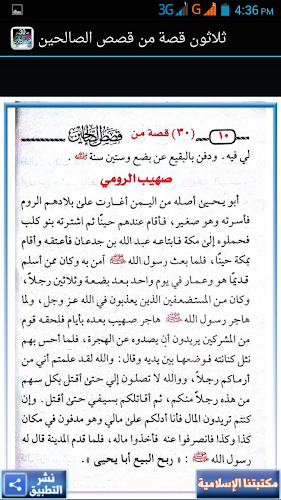 3G G 4:36 PM
ثلاثون قصة من قصص الصالحين
١٠ (٣٠) قصة من قصص الصالحين
لي فيه . ودفن بالبقيع عن بضع وستين سنة ﷺ .
صهيب الرومي
أبو يحيى أصله من اليمن أغارت على بلادهم الروم
فأسرته وهو صغير، فأقام عندهم حينًا ثم اشترته بنو كلب
فحملوه إلى مكة فابتاعه عبد الله بن جدعان فأعتقه وأقام
بمكة حينًا، فلما بعث رسول الله ﷺ آمن به وكان ممن أسلم
قديمًا هو وعمار في يوم واحد بعد بضعة وثلاثين رجلاً،
وكان من المستضعفين الذين يعذبون في الله عز وجل، ولما
هاجر رسول الله ﷺ هاجر صهيب بعده بأيام فلحقه قوم
من المشركين يريدون أن يصدوه عن الهجرة، فلما أحس بهم
نثل كنانته فوضعها بين يديه وقال: والله لقد علمتم أني من
أرماكم رجلاً، ووالله لا تصلون إلي حتى أقتل بكل سهم
من هذه رجلاً منكم، ثم أقاتلكم بسيفي حتى أقتل. وإن
كنتم تريدون المال فأنا أدلكم على مالي وهو مدفون في مكان
كذا وكذا فانصرفوا عنه فأخذوا ماله، فلما قدم المدينة قال له
رسول الله ﷺ : « ربح البيع أبا يحيى ».
نشر التطبيق
مكتبتنا الإسلامية